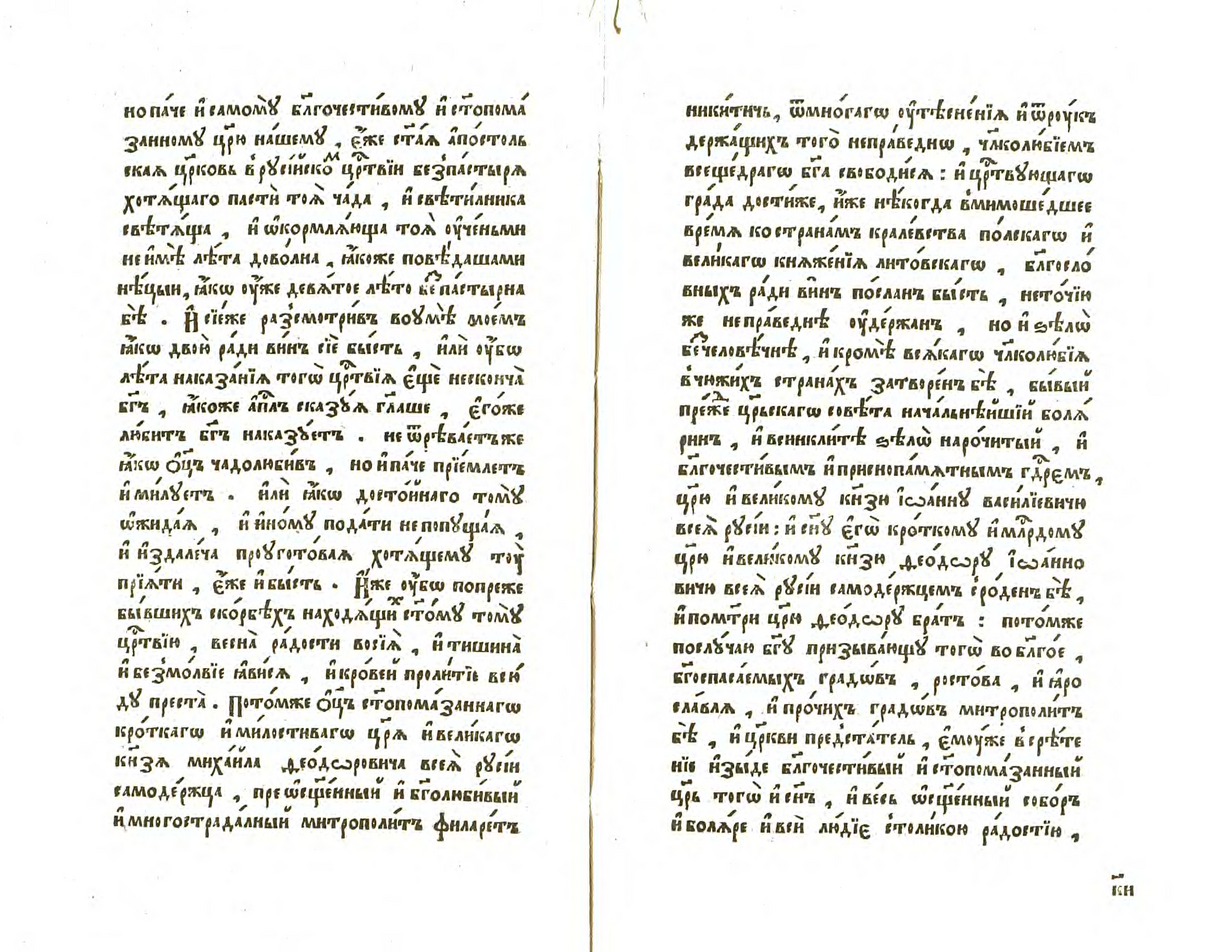 но па́че и҆ самомꙋ̀ бл҃гочести́вомꙋ и҆ ст҃опома́
занномꙋ цр҃ю на́шемꙋ , є҆́же ст҃а́ѧ а҆по́столь
скаѧ цр҃ковь в̾ рꙋсі́йскоⷨ црⷭ҇твїи без̾па́стырѧ
хотѧ́щаго пастѝ тоѧ̀ ча́да , и҆ свѣти́лника
свѣтѧ́ща , и҆ ѡ҆кормлѧ́юща тоѧ̀ оу҆че́ньми
не и҆мѣ̀ лѣ́та дово́лна , ꙗ҆́коже повѣ́дашами
нѣ́цыи, ꙗ҆́кѡ оу҆́же девѧ́тое лѣ́то беⷥпа́стырна
бѣ̀ . И҆ сїе́же раз̾смотри́въ во оу҆мѣ̀ мое́мъ
ꙗ҆́кѡ двою̀ ра́ди ви́нъ сїѐ бы́сть , и҆лѝ оу҆́бѡ
лѣ́та наказа́нїѧ тогѡ̀ црⷭ҇твїѧ є҆щѐ несконча̀
бг҃ъ , ꙗ҆́коже а҆пⷭ҇лъ сказꙋ́ѧ гл҃аше , є҆го́же
лю́битъ бг҃ъ наказꙋ́етъ . не ѿрѣва́етъже
ꙗ҆́кѡ ѻ҆ц҃ъ чадолюби́въ , но и҆ па́че прїе́млетъ
и҆ ми́лꙋетъ . и҆лѝ ꙗ҆́кѡ досто́йнаго томꙋ̀
ѡ҆жида́ѧ , и҆ и҆но́мꙋ пода́ти не попꙋща́ѧ ,
и҆ и҆здале́ча проуготовáѧ хотѧ́щемꙋ тоу̀
прїѧ́ти , є҆́же и҆ бы́сть . И҆́же оу҆́бѡ попреже
бы́вшихъ ско́рбѣхъ находѧ́щиⷯ ст҃о́мꙋ томꙋ̀
црⷭ҇твїю , весна̀ ра́дости восїѧ̀ , и҆ тишина̀
и҆ безмо́лвїе ꙗ҆ви́сѧ , и҆ кро́вей проли́тїе всю́
дꙋ преста̀ . Пото́мже ѻ҆ц҃ъ ст҃опома́заннагѡ
кро́ткагѡ и҆ ми́лостивагѡ цр҃ѧ̀ и҆ вели́кагѡ
кн҃зѧ михаи́ла ѳео́дѡровича всеѧ̀ рꙋсі́и
самоде́ржца , преѡ҆сщ҃е́нный и҆ бг҃олюби́вый
и҆ многострада́лный митрополи́тъ филаре́тъ
ники́тичь , ѿ мно́гагѡ оу҆тѣсне́нїѧ и҆ ѿ роу́къ
держа́щихъ того̀ непра́веднѡ , чл҃колю́бїемъ
всеще́драгѡ бг҃а свободи́сѧ : и҆ црⷭ҇твꙋющагѡ
гра́да дости́же, и҆́же нѣ́когда в̾мимоше́дшее
вре́мѧ ко страна́мъ кра́левства по́лскагѡ и҆
вели́кагѡ кнѧже́нїѧ лито́вскагѡ , бл҃госло́
вныхъ ра́ди ви́нъ по́сланъ бы́сть , не то́чїю
же непра́веднѣ оу҆де́ржанъ , но и҆ ѕѣлѡ̀
беⷥчелове́чнѣ , и҆ кро́мѣ всѧ́кагѡ чл҃колю́бїѧ
в̾ чю́жихъ страна́хъ затворе́нъ бѣ̀ , бы́вый
преⷤ҇же цр҃ьскагѡ совѣ́та нача́льнѣйшїй болѧ́
ринъ , и҆ в синкли́тѣ ѕѣлѡ̀ наро́читый , и҆
бл҃гочести́вымъ и҆ приснопа́мѧтнымъ гдⷭ҇ремъ,
цр҃ю и҆ вели́комꙋ кн҃зю і҆ѡа́ннꙋ васи́лїевичю
всеѧ̀ рꙋсі́и : и҆ сн҃ꙋ є҆гѡ̀ кро́ткомꙋ и҆ млⷭ҇рдомꙋ
цр҃ю и҆ вели́комꙋ кн҃зю ѳео́дѡрꙋ і҆ѡа́нно
вичю всеѧ̀ рꙋсі́и самоде́ржцемъ сро́денъ бѣ̀ ,
и҆ по мт҃ри цр҃ю ѳео́дѡрꙋ бра́тъ : пото́мже
по слꙋ́чаю бг҃ꙋ призыва́ющꙋ тогѡ̀ во бл҃го́е ,
бг҃оспаса́емыхъ градѡ́въ , росто́ва , и҆ ꙗ҆ро
сла́влѧ , и҆ про́чихъ градѡ́въ митрополи́тъ
бѣ̀ , и҆ цр҃кви предста́тель , є҆мо́уже в̾ срѣ́те
нїе и҆зы́де бл҃гочести́вый и҆ ст҃опома́занный
цр҃ь тогѡ̀ и҆ сн҃ъ , и҆ ве́сь ѡ҆сщ҃е́нный собо́ръ
и҆ болѧ́ре и҆ всѝ лю́дїє с̾толи́кою ра́достїю ,
к҃и